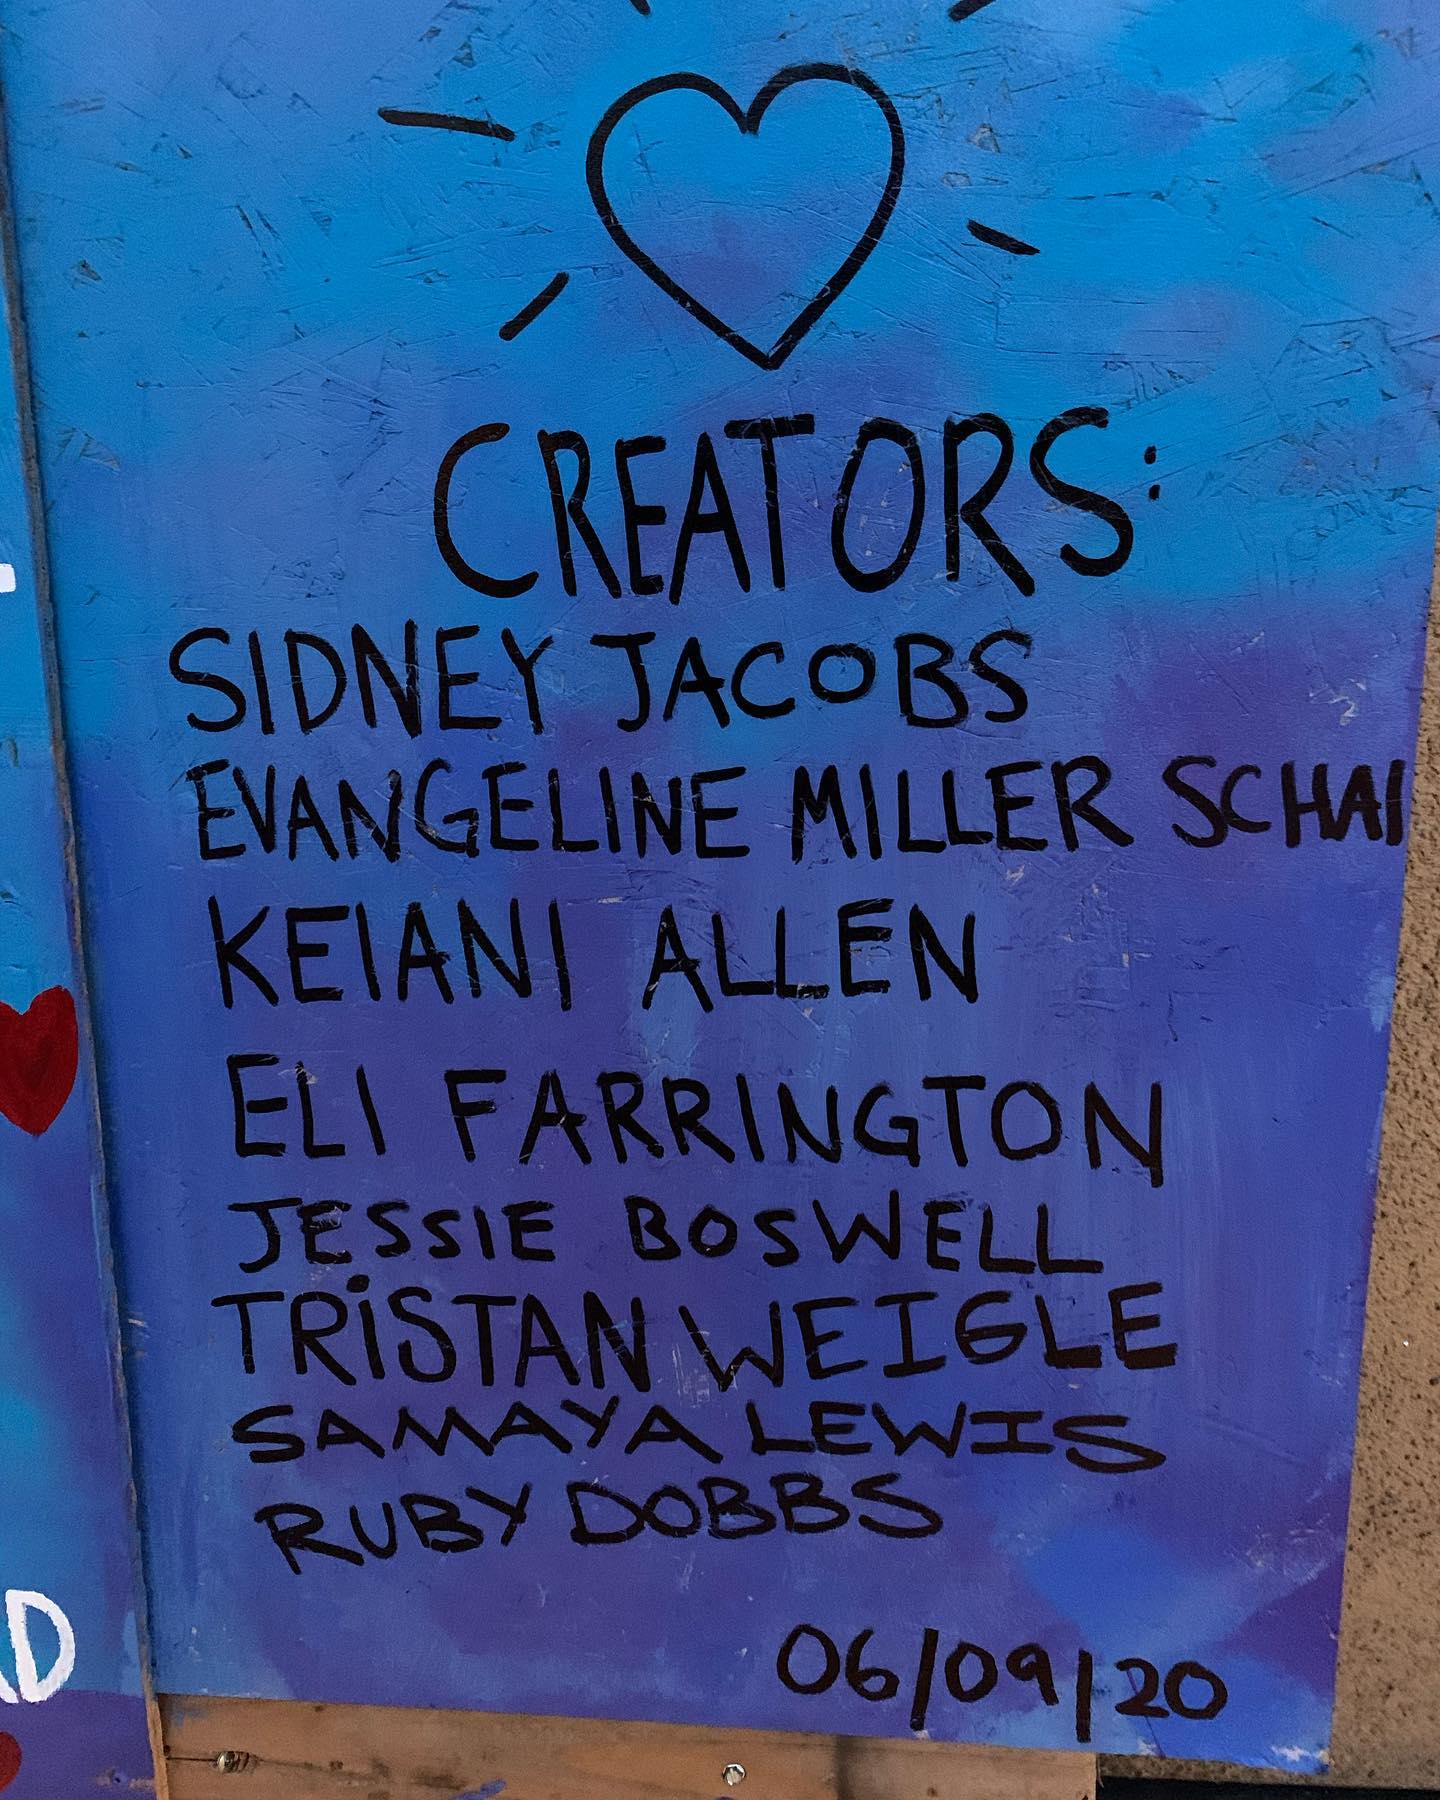 CREATORS:
SIDNEY JACOBS
EVANGELINE MILLER SCHAI
KEIANI ALLEN
ELI FARRINGTON
JESSIE BOSWELL
TRiSTAN WEIGLE
SAMAYA LEWIS
RUBY DOBBS
D
06/09/20